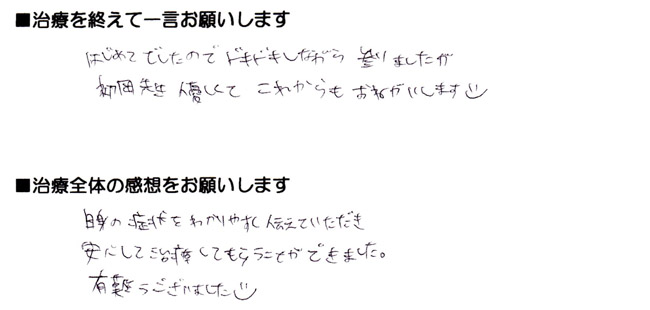 ■治療を終えて一言お願いします
はじめてでしたのでドキドキしながら参りましたが
初岡先生優しくて これからも おねがいします
■治療全体の感想をお願いします
自身の症状をわかりやすく伝えていただき
安心して治療してもらうことができました。
有難うございました